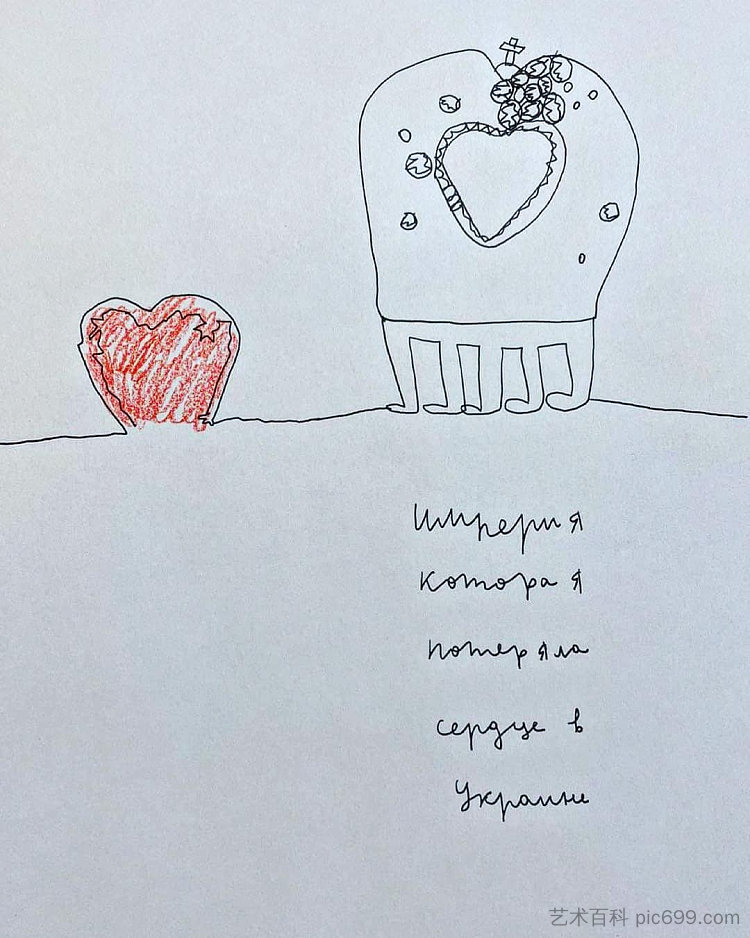 Империя
которая
потеряла
сердце в
Украине
艺术百科 pic699.com